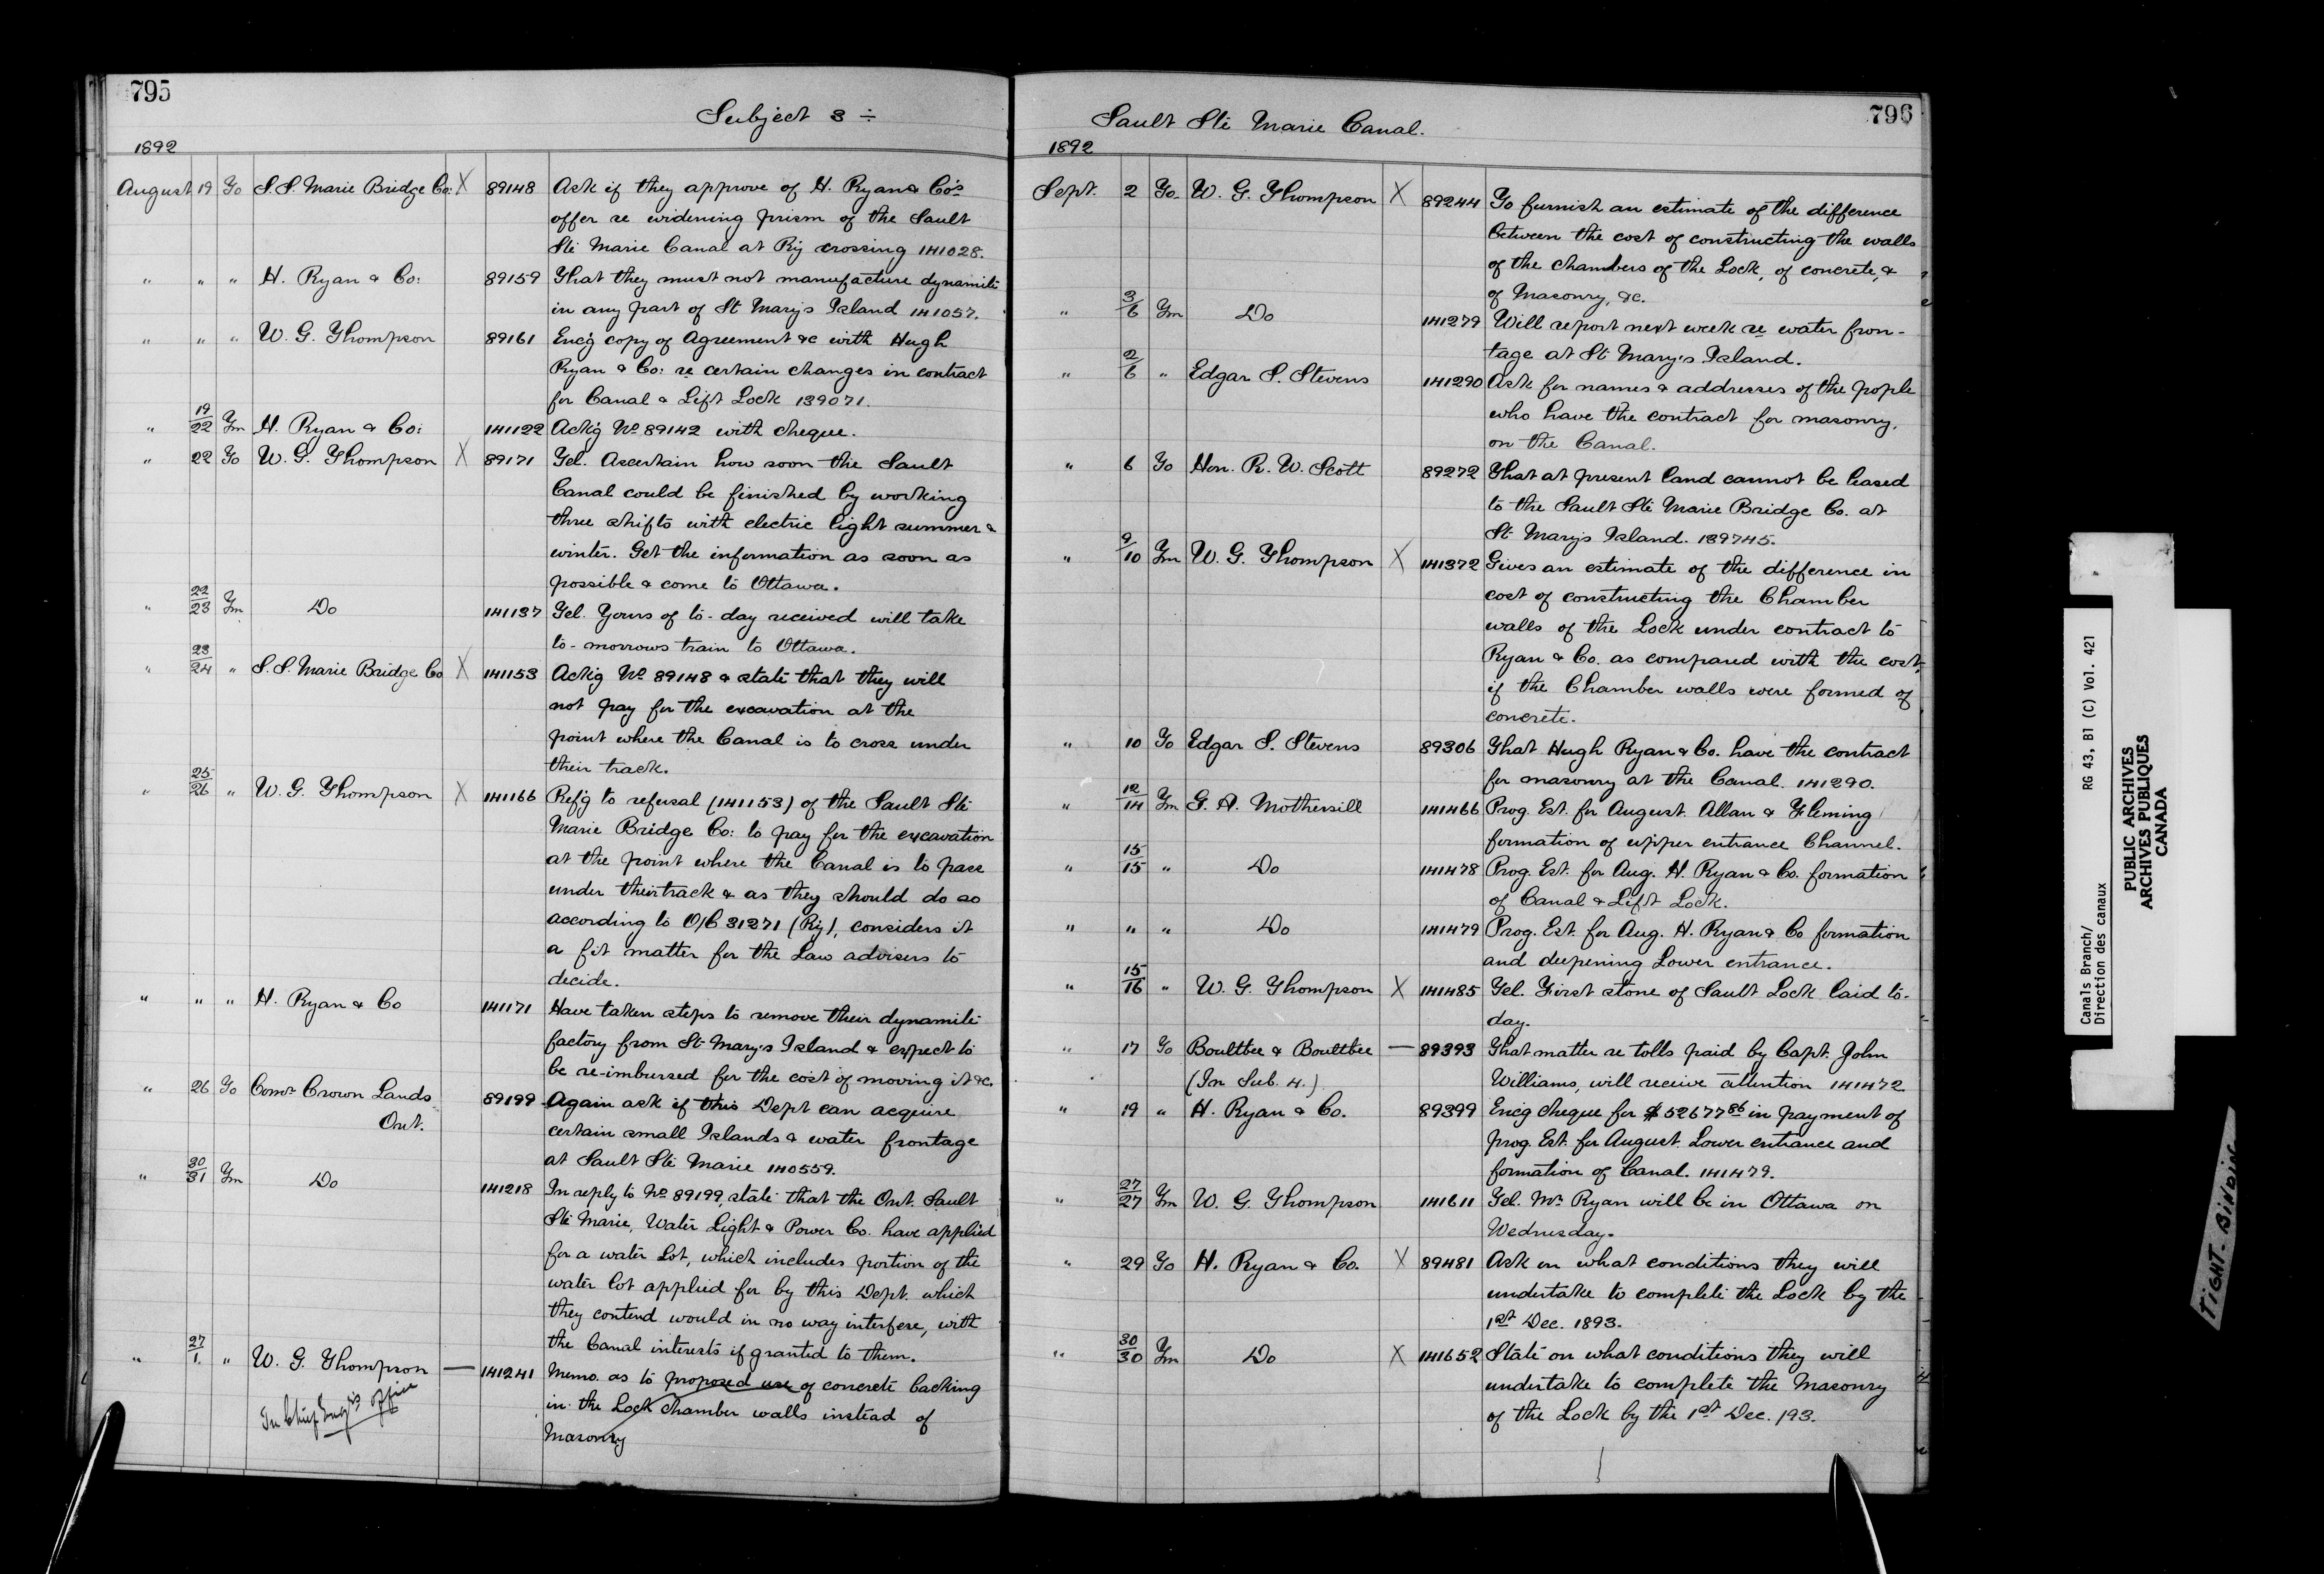 795
Subject 3 ÷
1892
August 19 To S.S. Marie Bridge Co: X 89148 Ask if they approve of H. Ryan & Co's
offer re widening prism of the Sault
Ste Marie Canal at Ry crossing 141028.
" " " H. Ryan & Co: 89159 That they must not manufacture dynamite
in any part of St Mary's Island 141057.
" " " W. G. Thompson 89161 Enc'g copy of Agreement &c with Hugh
Ryan & Co: re certain changes in contract
for Canal & Lift Lock 139071.
" 19/22 Fm H. Ryan & Co: 141122 Ack'g No 89142 with cheque.
" 22 To W. G. Thompson X 89171 Tel. Ascertain how soon the Sault
Canal could be finished by working
three shifts with electric light summer &
winter. Get the information as soon as
possible & come to Ottawa.
" 22/23 Fm Do 141137 Tel. Yours of to-day received will take
to-morrows train to Ottawa.
" 23/24 " S.S. Marie Bridge Co X 141153 Ack'g No 89148 & state that they will
not pay for the excavation at the
point where the Canal is to cross under
their track.
" 25/26 " W. G. Thompson X 141166 Ref'g to refusal (141153) of the Sault Ste
Marie Bridge Co: to pay for the excavation
at the point where the Canal is to pass
under their track & as they should do so
according to O/C 31271 (Ry), considers it
a fit matter for the Law advisers to
decide.
" " " H. Ryan & Co 141171 Have taken steps to remove their dynamite
factory from St Mary's Island & expect to
be re-imbursed for the cost of moving it &c.
" 26 To Comr Crown Lands 89199 Again ask if this Dept can acquire
Ont. certain small Islands & water frontage
at Sault Ste Marie 140559.
" 30/31 Fm Do 141218 In reply to No 89199, state that the Ont. Sault
Ste Marie, Water Light & Power Co. have applied
for a water Lot, which includes portion of the
water lot applied for by this Dept. which
they contend would in no way interfere, with
the Canal interests if granted to them.
" 27/1. " W. G. Thompson — 141241 Memo. as to proposed use of concrete backing
In Chief Eng'rs office in the Lock chamber walls instead of
Masonry
796
Sault Ste Marie Canal.
1892
Sept. 2 To. W. G. Thompson X 89244 To furnish an estimate of the difference
between the cost of constructing the walls
of the chambers of the Lock, of concrete, &
of Masonry, &c.
" 3/6 Fm Do 141279 Will report next week re water fron-
tage at St Mary's Island.
" 2/6 " Edgar S. Stevens 141290 Ask for names & addresses of the pople
who have the contract for masonry,
on the Canal.
" 6 To Hon. R. W. Scott 89272 That at present land cannot be leased
to the Sault Ste Marie Bridge Co. at
St Mary's Island. 139745.
" 9/10 Fm W. G. Thompson X 141372 Gives an estimate of the difference in
cost of constructing the Chamber
walls of the Lock under contract to
Ryan & Co. as compared with the cost,
if the Chamber walls were formed of
concrete.
" 10 To Edgar S. Stevens 89306 That Hugh Ryan & Co. have the contract
for masonry at the Canal. 141290.
" 12/14 Fm G. A. Mothersill 141466 Prog. Est. for August. Allan & Fleming
formation of upper entrance Channel.
" 15/15 " Do 141478 Prog. Est. for Aug. H. Ryan & Co. formation
of Canal & Lift Lock.
" " " Do 141479 Prog. Est. for Aug. H. Ryan & Co formation
and deepening Lower entrance.
" 15/16 " W. G. Thompson X 141485 Tel. First stone of Sault Lock laid to-
day.
" 17 To Boultbee & Boultbee — 89393 That matter re tolls paid by Capt. John
(In Sub. 4.) Williams, will receive attention 141472
" 19 " H. Ryan & Co. 89399 Enc'g cheque for $52677 86 in payment of
prog. Est. for August. Lower entrance and
formation of Canal. 141479.
" 27/27 Fm W. G. Thompson 141611 Tel. Mr. Ryan will be in Ottawa on
Wednesday.
" 29 To H. Ryan & Co. X 89481 Ask on what conditions they will
undertake to complete the Lock by the
1st Dec. 1893.
" 30/30 Fm Do X 141652 State on what conditions they will
undertake to complete the Masonry
of the Lock by the 1st Dec. 193.
Canals Branch/ RG 43, B1 (C) Vol. 421
Direction des canaux
PUBLIC ARCHIVES
ARCHIVES PUBLIQUES
CANADA
TIGHT-BINDING